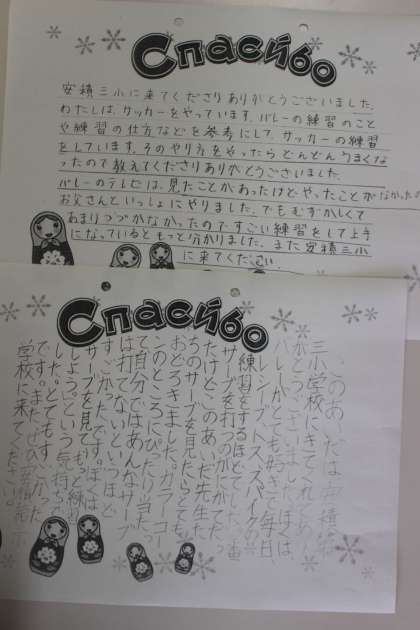 Спасибо
安積三小に来てくださりありがとうございました。
わたしは、サッカーをやっています。バレーの練習のこと
や練習の仕方などを参考にして、サッカーの練習
をしています。そのやり方をやったらどんどんうまくな
ったので教えてくださりありがとうございました。
バレーのテレビは、見たことがあったけどやったことがなかったの
お父さんといっしょにやりました。でもむずかしくて
あまりつづかなかったのですごい練習をして上手
になっているともっと分かりました。また安積三小
に来てください。
Спасибо
このあいだは安積第
三小学校にきてくれてあり
がとうございました。ぼくは、
バレーがとても好きで毎日、
レシーブトススパイクの
練習をするほどでした。
サーブを打つのがにがてだっ
たけどこのあいだ先生た
ちのサーブを見たらとても
おどろきました。カラーコー
ンのところにぴったり当たっ
て自分ではあんなサーブ
は打てないというほど
すごかったです。ぼくは
サーブを見てもっと練習
しようという気持ちで
した。とてもすごかった
です。またぜひ安積第三小
学校に来てください。